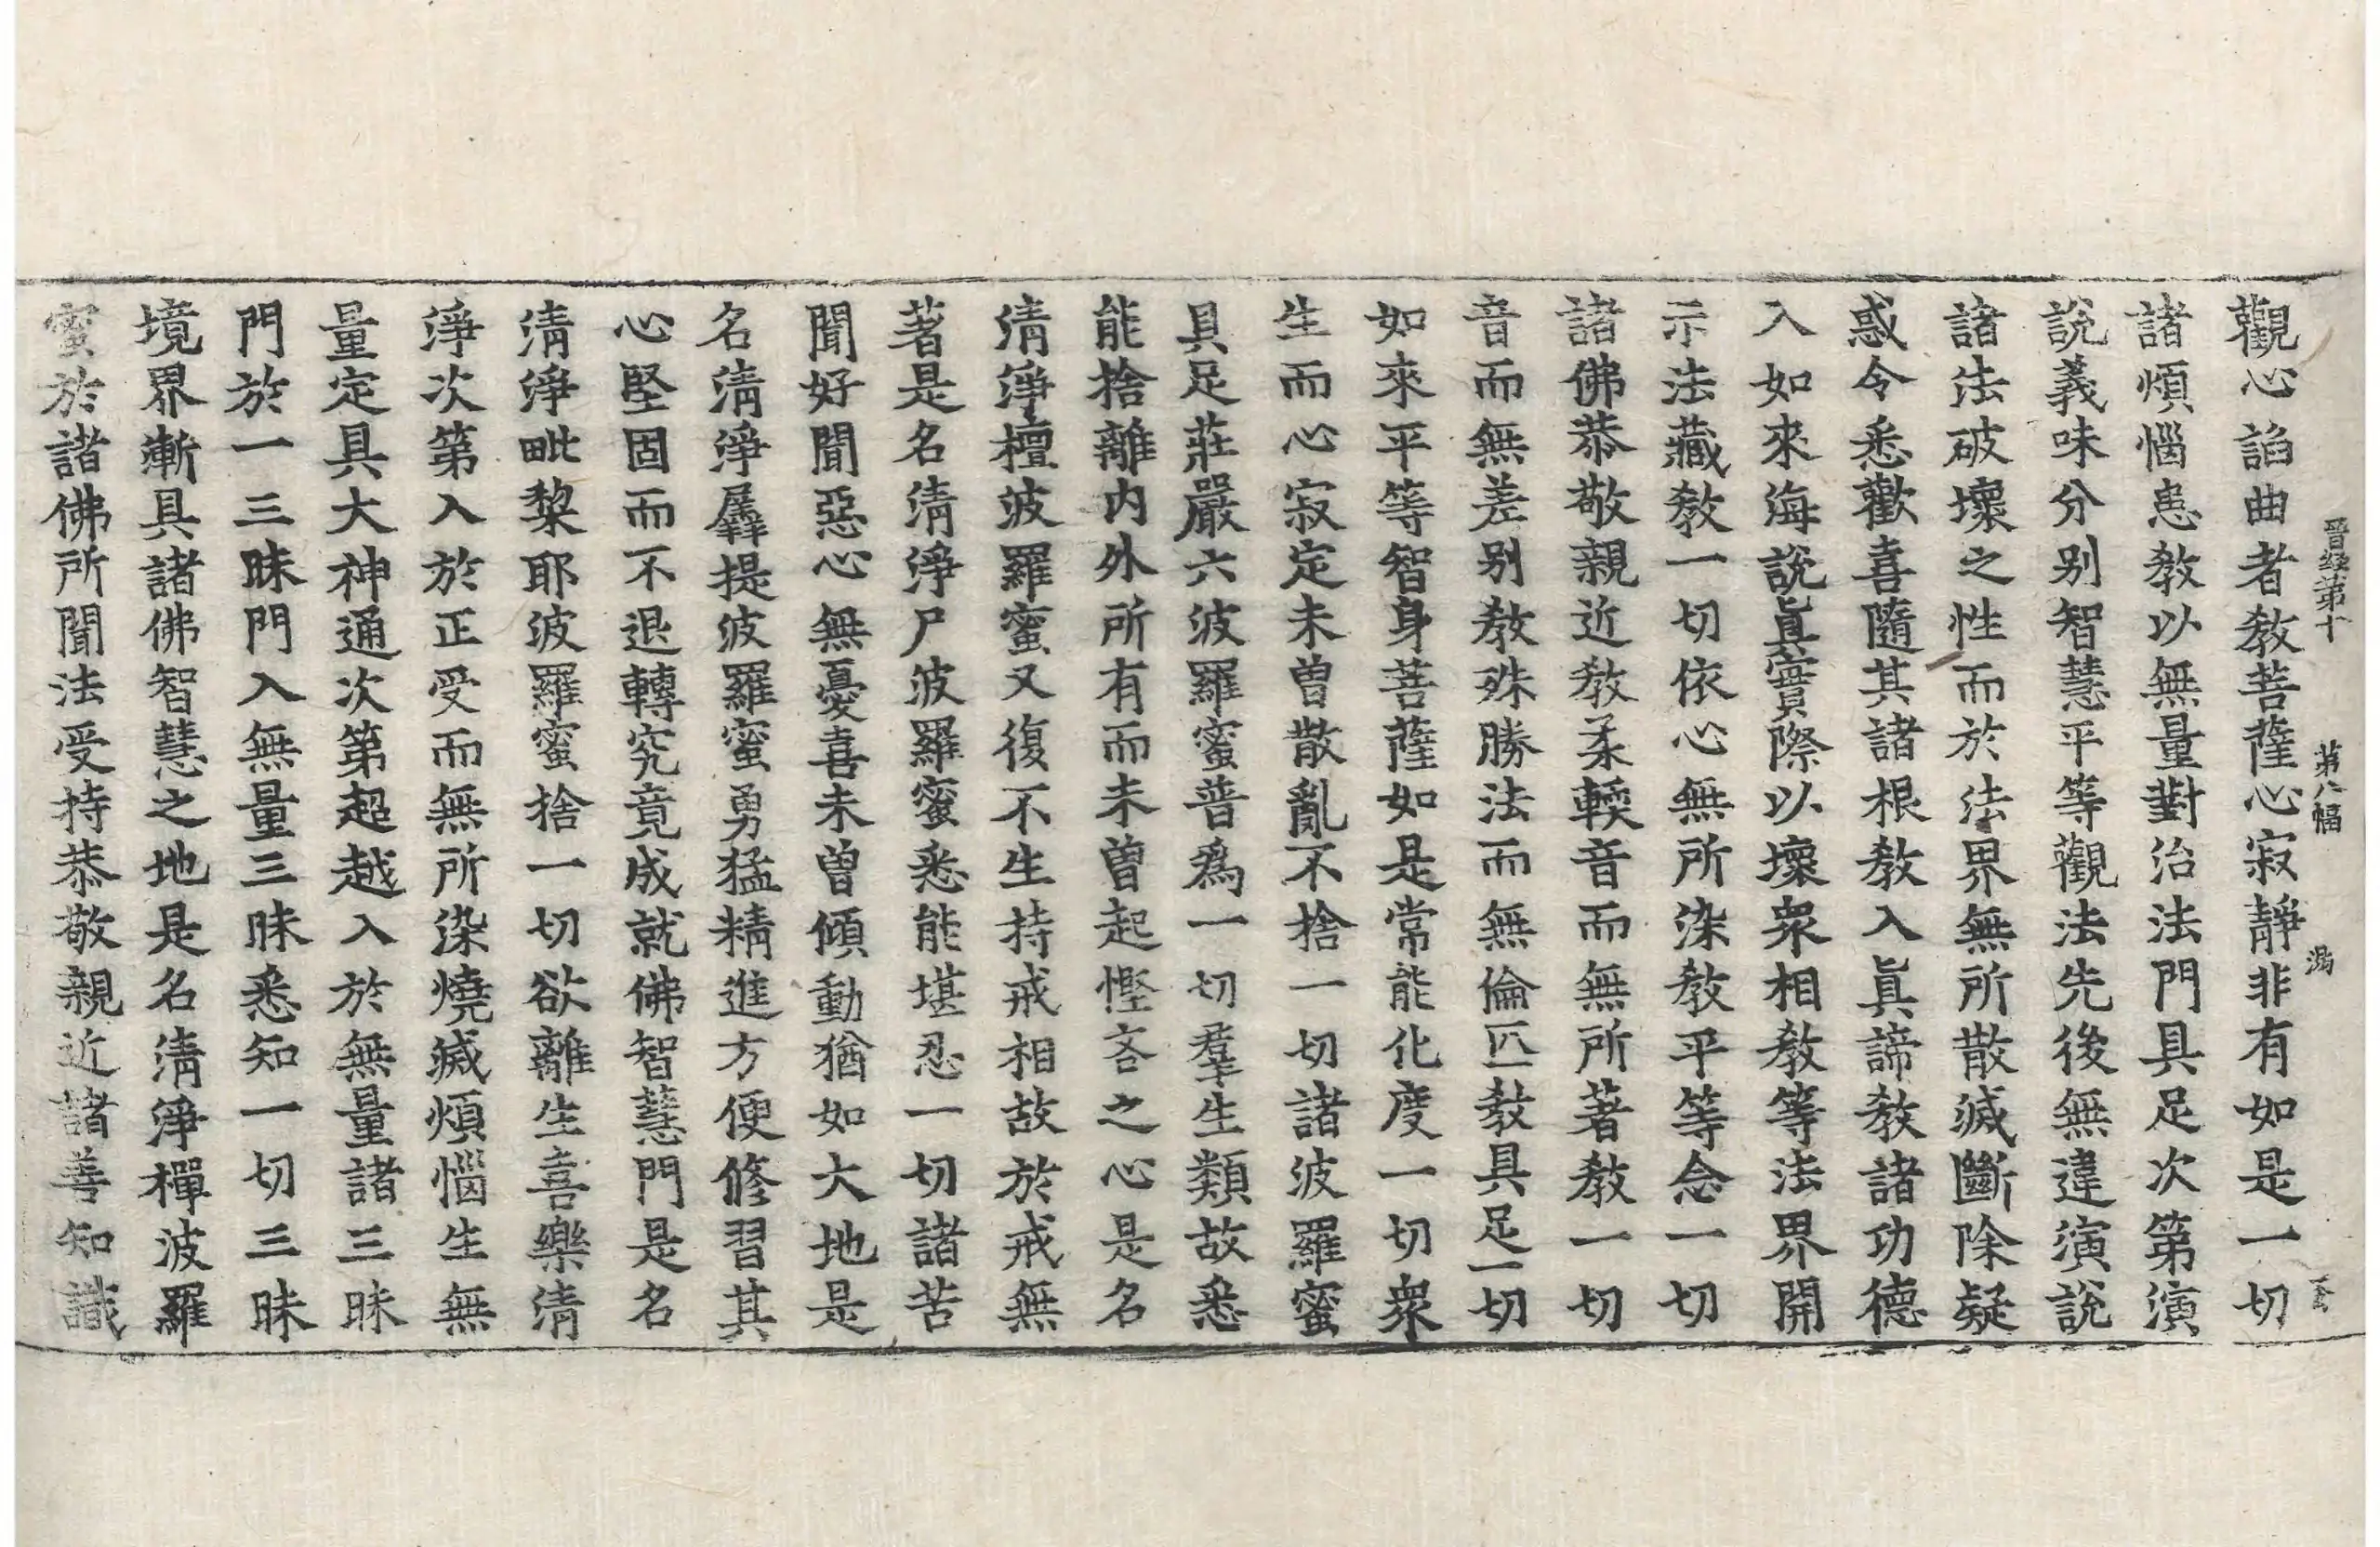 晉經第十　第八幅　潙
觀心諂曲者教菩薩心寂靜非有如是一切
諸煩惱患教以無量對治法門具足次第演
說義味分别智慧平等觀法先後無違演說
諸法破壞之性而於法界無所散滅斷除疑
惑令悉歡喜隨其諸根教入眞諦教諸功德
入如來海說眞實際以壞衆相教等法界開
示法藏教一切依心無所染教平等念一切
諸佛恭敬親近教柔輭音而無所著教一切
音而無差别教殊勝法而無倫匹教具足一切
如來平等智身菩薩如是常能化度一切衆
生而心寂定未曽散亂不捨一切諸波羅蜜
具足莊嚴六波羅蜜普爲一切羣生類故悉
能捨離内外所有而未曽起慳吝之心是名
清淨檀波羅蜜又復不生持戒相故於戒無
著是名清淨尸波羅蜜悉能堪忍一切諸苦
聞好聞惡心無憂喜未曽傾動猶如大地是
名清淨羼提波羅蜜勇猛精進方便修習其
心堅固而不退轉究竟成就佛智慧門是名
清淨毗棃耶波羅蜜捨一切欲離生喜樂清
淨次第入於正受而無所染燒滅煩惱生無
量定具大神通次第超越入於無量諸三昧
門於一三昧門入無量三昧悉知一切三昧
境界漸具諸佛智慧之地是名清淨禪波羅
蜜於諸佛所聞法受持恭敬親近諸善知識